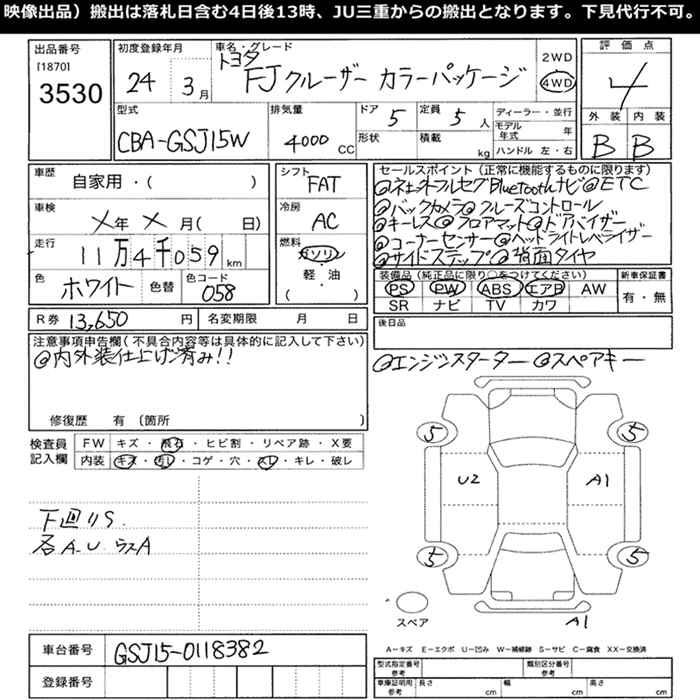 映像出品）搬出は落札日含む4日後13時、JU三重からの搬出となります。下見代行不可。
出品番号
[1870]
3530
初度登録年月
24年 3月
車名・グレード
トヨタ
FJクルーザー カラーパッケージ
2WD
4WD
評価点
4
外装 内装
B B
型式
CBA-GSJ15W
排気量
4000 CC
ドア 5
形状
定員 5 人
積載 kg
ディーラー・並行
モデル年式 年
ハンドル 左・右
車歴
自家用・( )
車検
メ年 メ月( 日)
走行
11万4千059 km
色
ホワイト
色替
色コード
058
シフト
FAT
冷房
AC
燃料
ガソリン
軽・油
( )
セールスポイント（正常に機能するものに限ります）
@ネェネトフルセグBluetoothナビ@ETC
@バックカメラ@クルーズコントロール
@キーレス@フロアマット@ドアバイザー
@コーナーセンサー@ヘッドライトレベライザー
@サイドステップ@背面タイヤ
装備品（純正品に限り○をつけてください）
PS PW ABS エアB AW
SR ナビ TV カワ
新車保証書
有・無
R券 13,650 円
名変期限 月 日
後日品
@エンジンスターター @スペアキー
注意事項申告欄（不具合内容等は具体的に記入して下さい）
@内外装仕上げ済み!!
修復歴 有（箇所 ）
検査員記入欄
FW キズ・飛石・ヒビ割・リペア跡・X要
内装 キズ・汚レ・コゲ・穴・スレ・キレ・破レ
下廻リS.
各A.U.ウスA
5 5
U2 A1
5 5
スペア
A1
A－キズ E－エクボ U－凹み W－補修跡 S－サビ C－腐食 XX－交換済
車台番号 GSJ15-0118382
登録番号
型式指定番号 参考
類別区分番号 参考
車庫証明用 参考 長さ cm 幅 cm 高さ cm